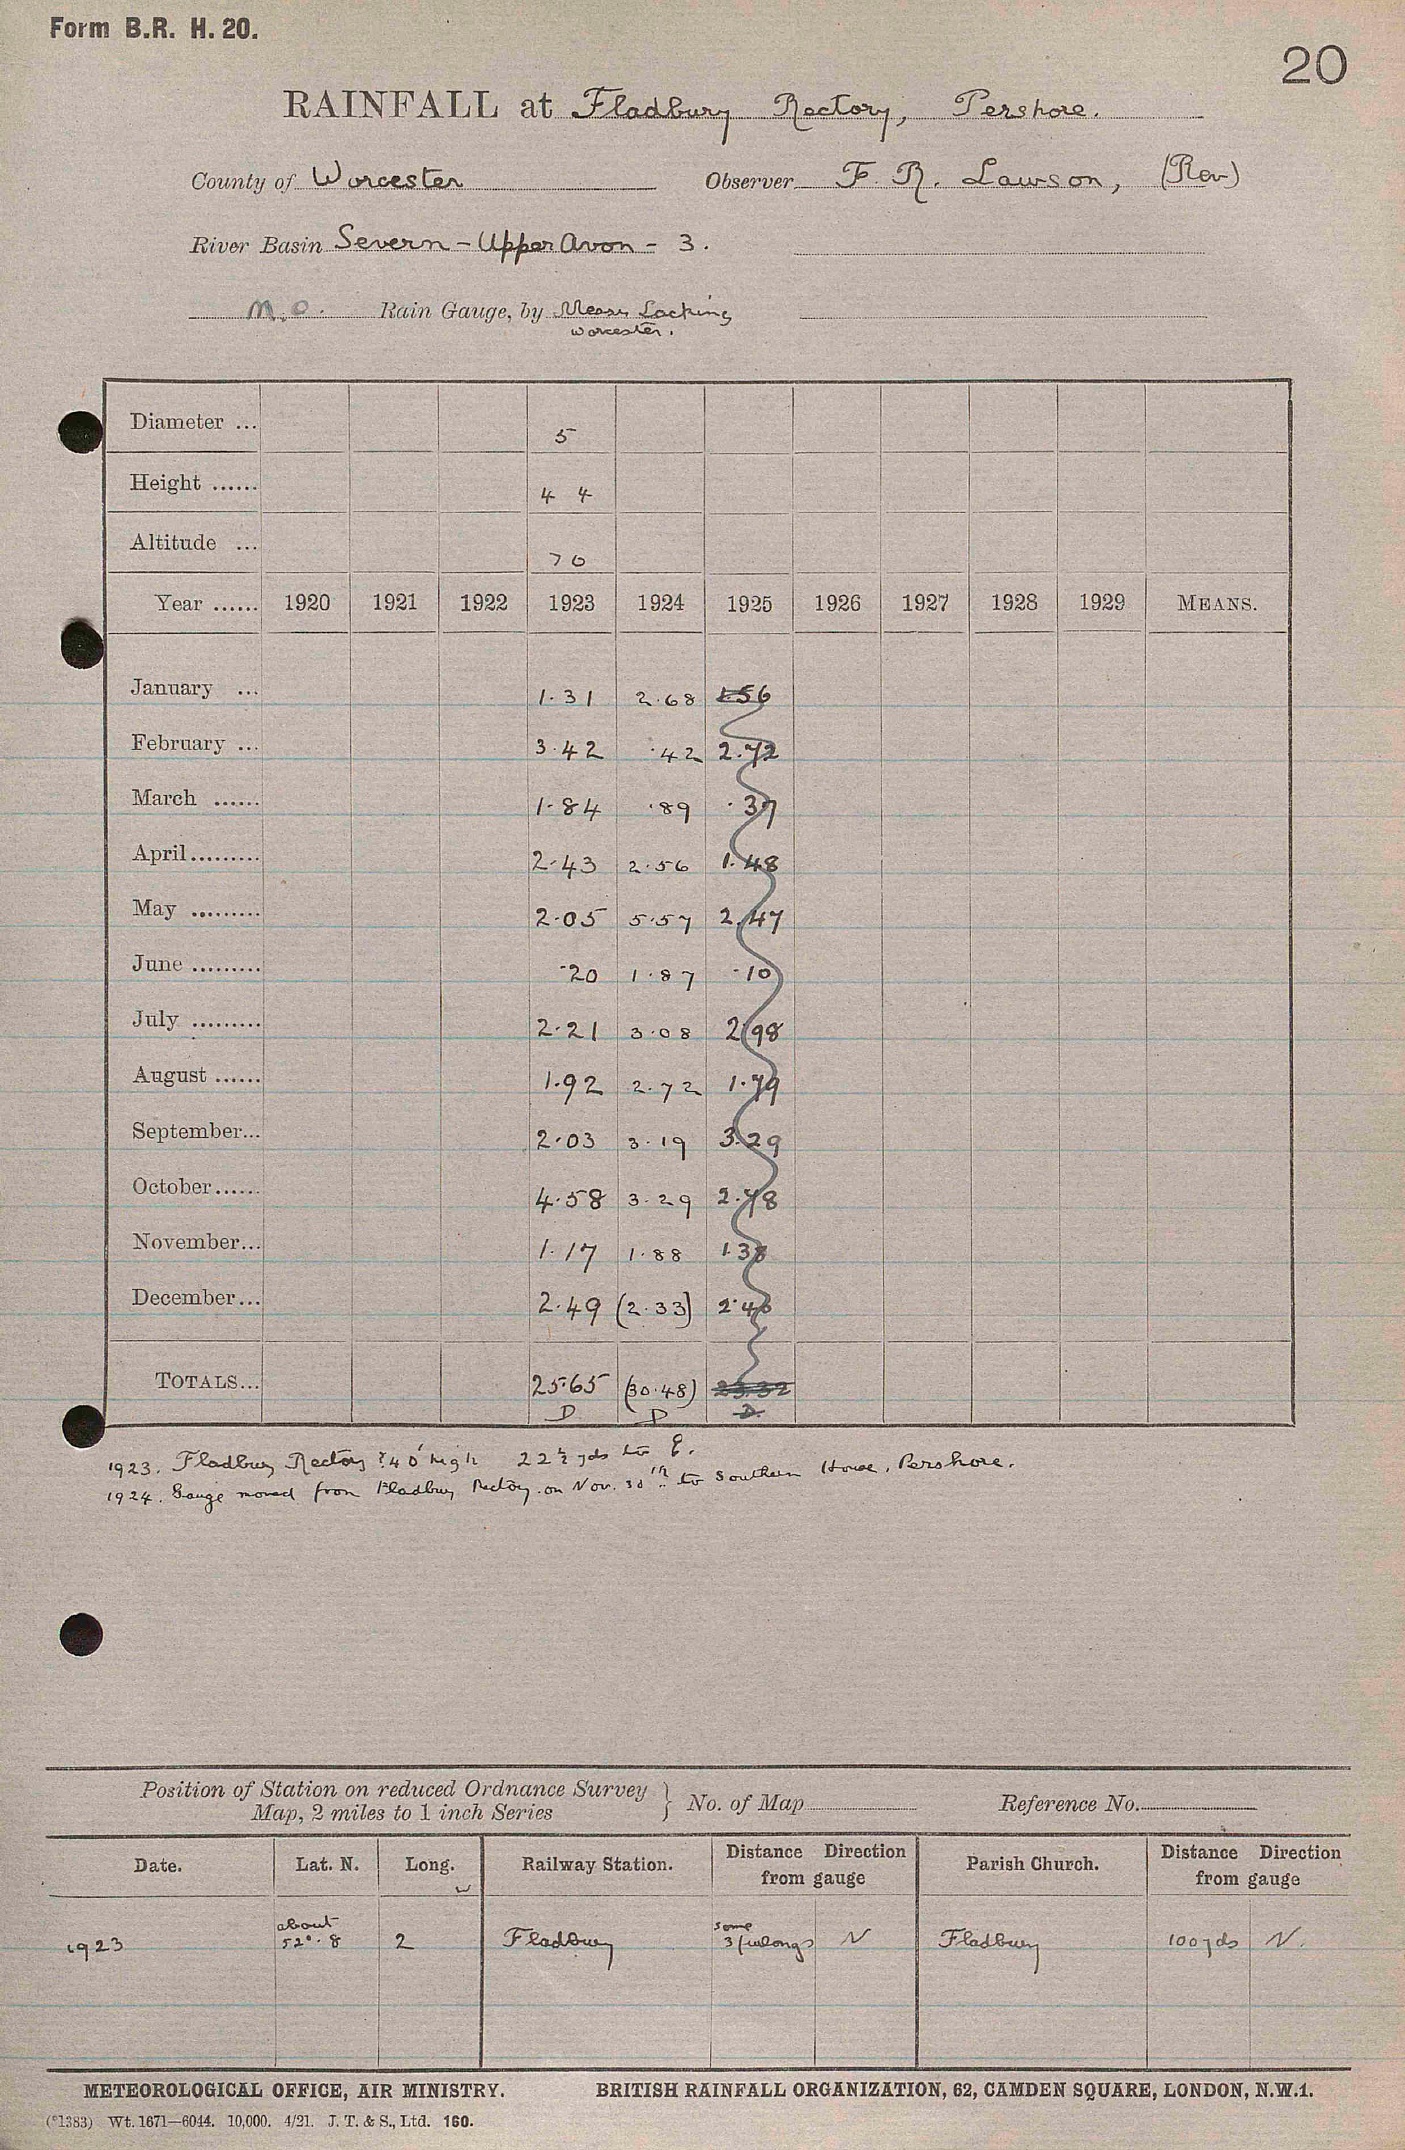 Form B.R. H. 20.
20
RAINFALL at Fladbury Rectory, Pershore.
County of Worcester Observer F. R. Lawson, (Rev)
River Basin Severn - Upper Avon - 3.
M.O. Rain Gauge, by Messrs Locking
Worcester.
Diameter ... 5
Height ...... 4 4
Altitude ... 70
Year ...... 1920 1921 1922 1923 1924 1925 1926 1927 1928 1929 MEANS.
January ... 1.31 2.68 1.56
February ... 3.42 .42 2.72
March ...... 1.84 .89 .37
April......... 2.43 2.56 1.48
May ......... 2.05 5.57 2.47
June ......... .20 1.87 .10
July ......... 2.21 3.08 2.98
August ...... 1.92 2.72 1.79
September... 2.03 3.19 3.29
October...... 4.58 3.29 2.78
November... 1.17 1.88 1.38
December... 2.49 (2.33) 2.40
TOTALS... 25.65 (30.48) 23.32
D D D.
1923. Fladbury Rectory ? 40' high 22½ yds to E.
1924. Gauge moved from Fladbury Rectory on Nov. 30th to Southern House, Pershore.
Position of Station on reduced Ordnance Survey
Map, 2 miles to 1 inch Series } No. of Map Reference No.
Date. Lat. N. Long. W Railway Station. Distance Direction from gauge Parish Church. Distance Direction from gauge
1923 about 52°.8 2 Fladbury some 3 furlongs N Fladbury 100 yds N.
METEOROLOGICAL OFFICE, AIR MINISTRY. BRITISH RAINFALL ORGANIZATION, 62, CAMDEN SQUARE, LONDON, N.W.1.
(*1383) Wt. 1671—6044. 10,000. 4/21. J. T. & S., Ltd. 160.